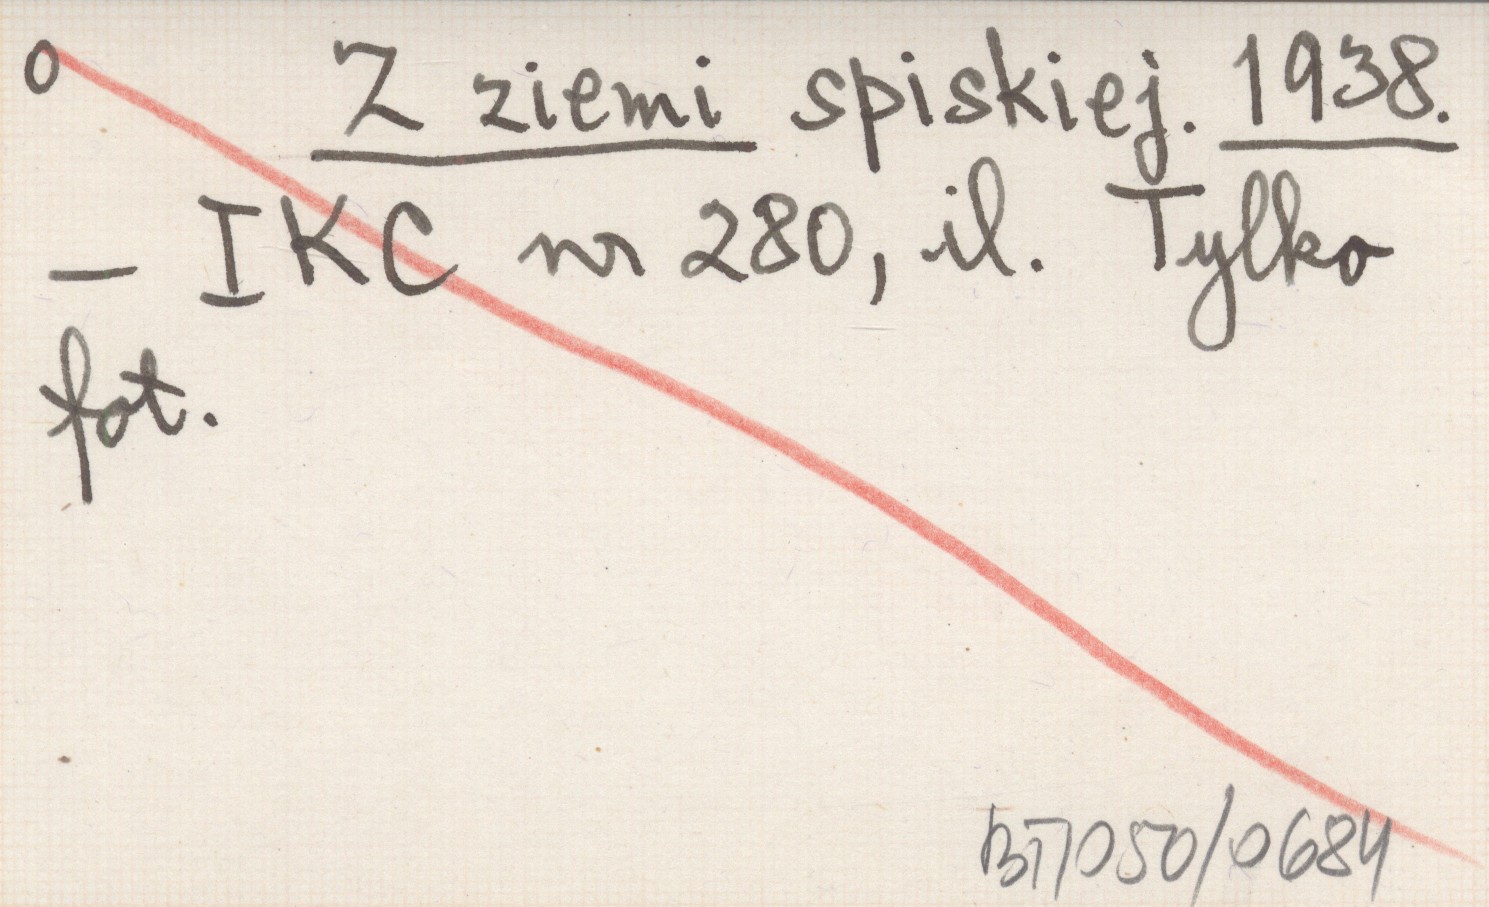 o Z ziemi spiskiej. 1938.
– IKC nr 280, il. Tylko
fot.
BT/050/0684